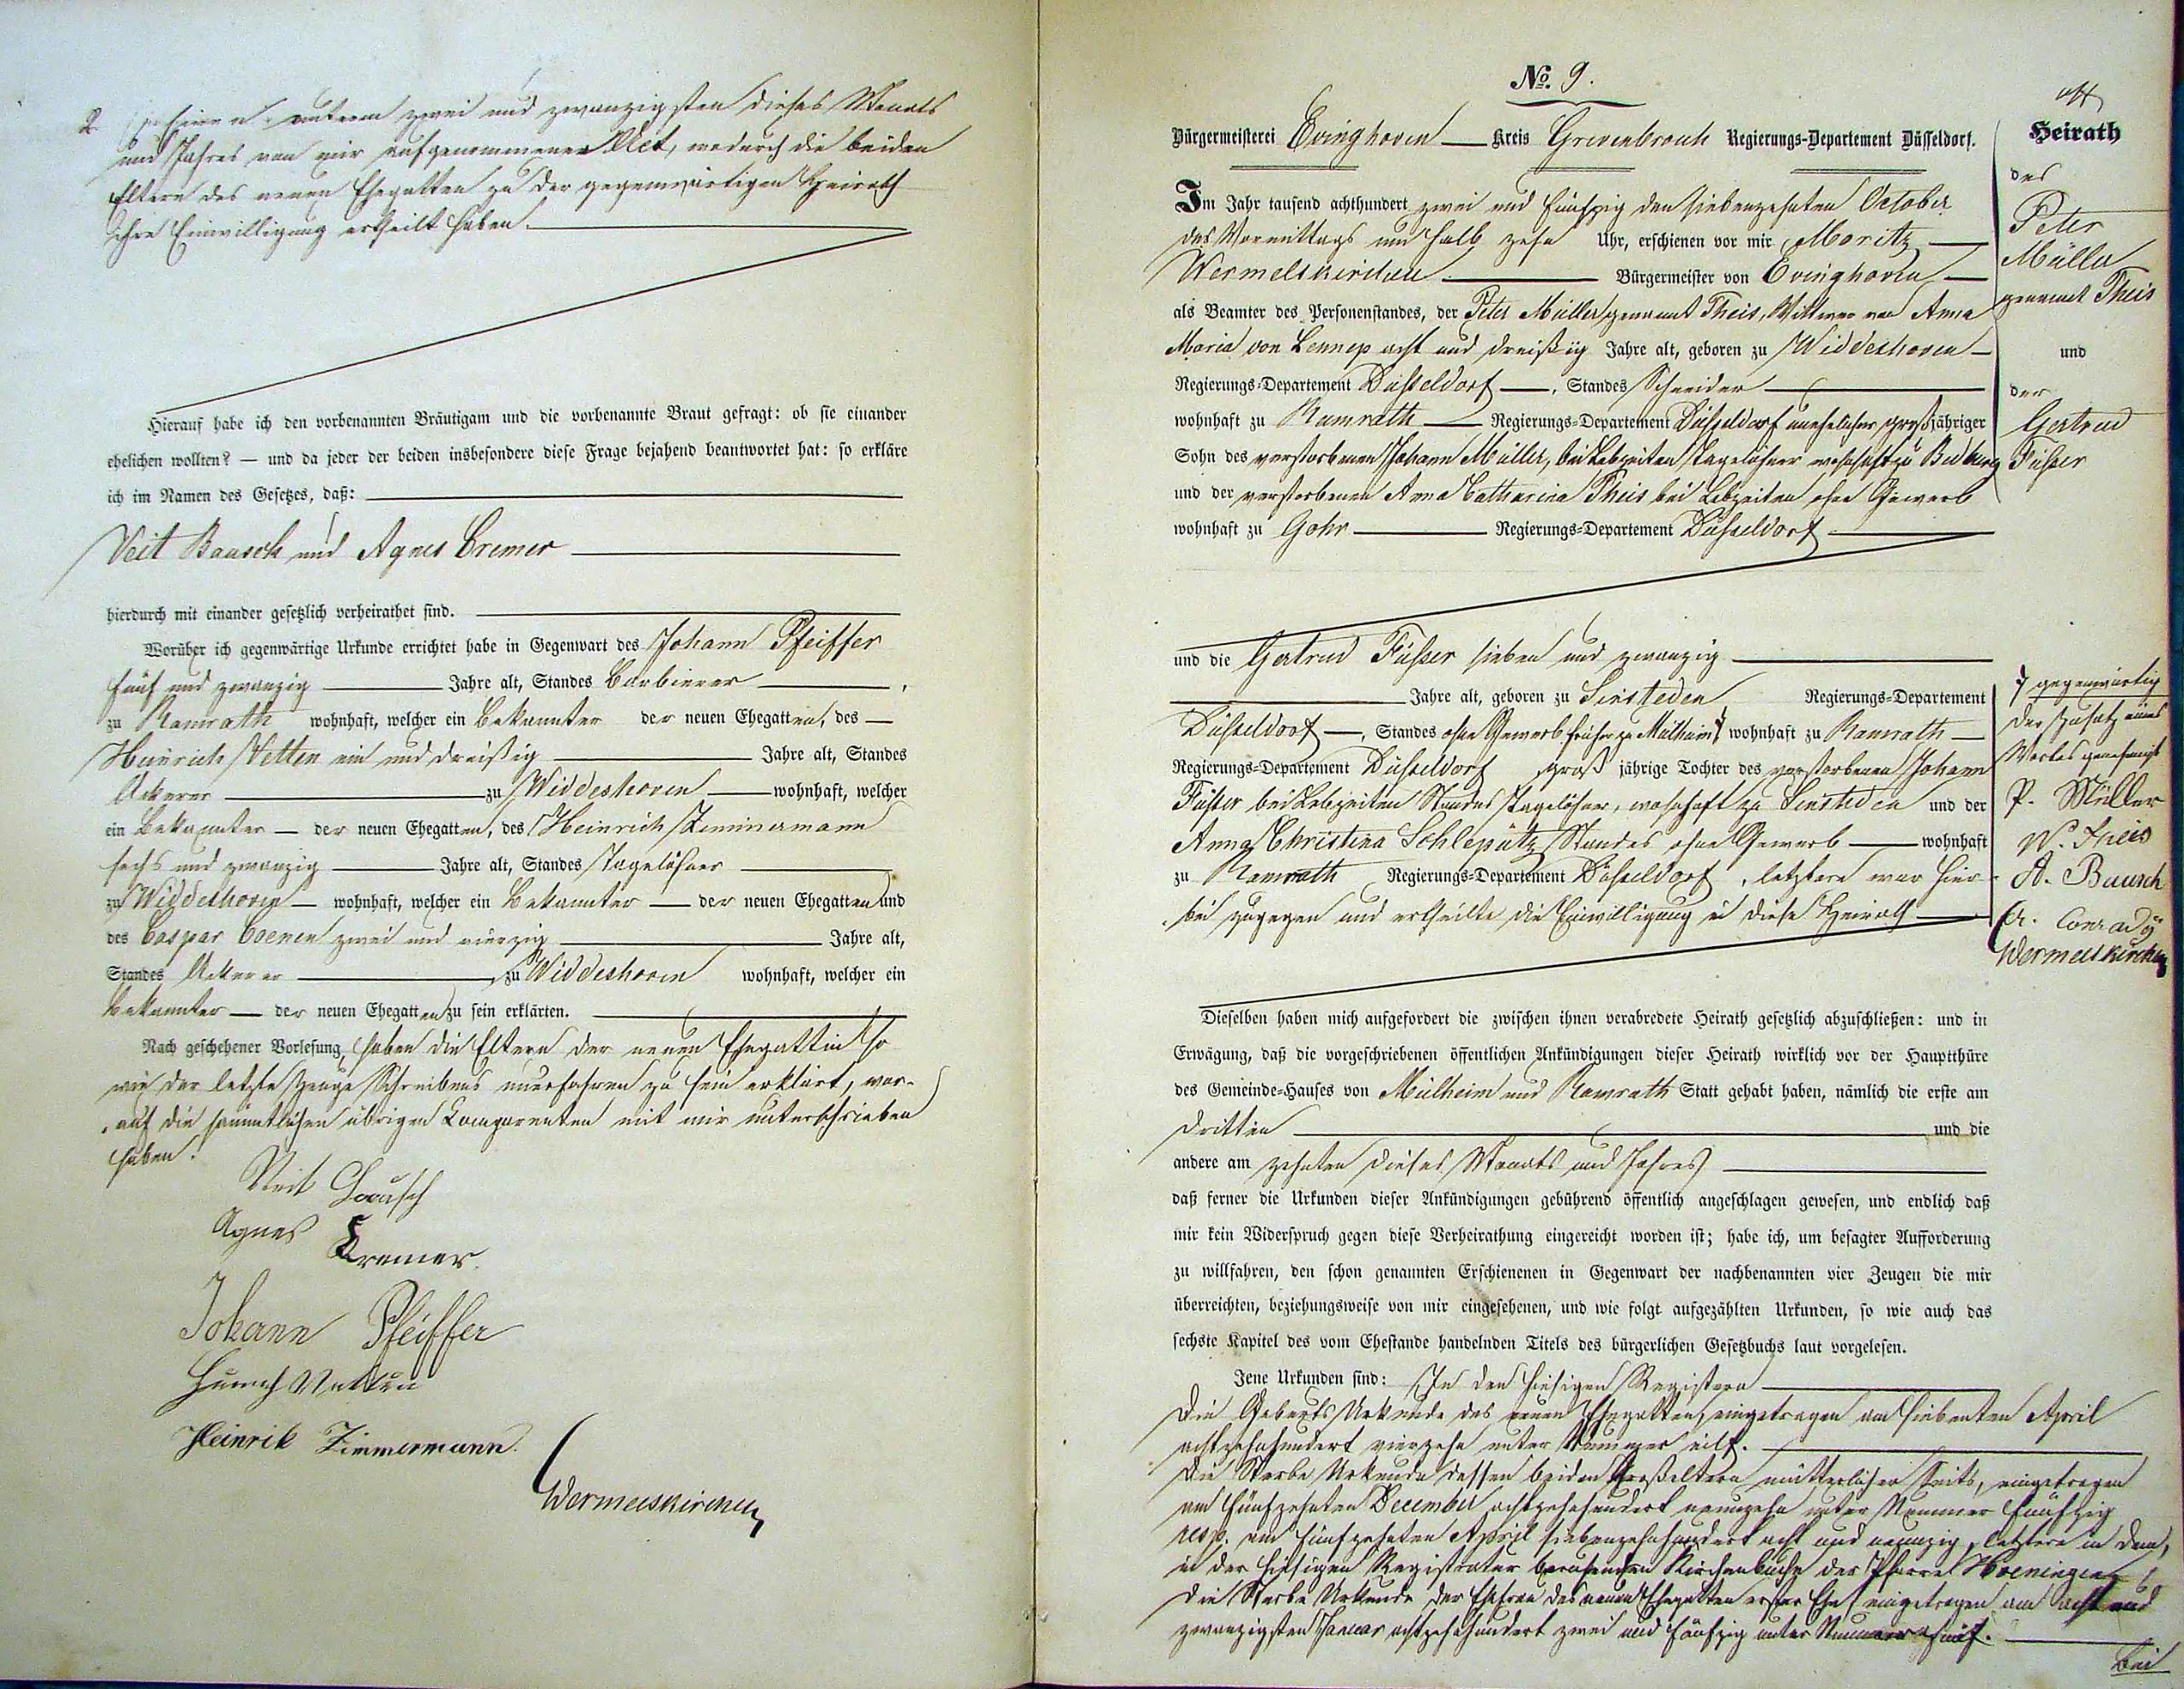 2. unterm zwei und zwanzigsten dieses Monats
und Jahres von mir aufgenommener Act, wodurch die beiden
Eltern des neuen Ehegatten zu der gegenwärtigen Heirath
ihre Einwilligung ertheilt haben.
Hierauf habe ich den vorbenannten Bräutigam und die vorbenannte Braut gefragt: ob sie einander
ehelichen wollten? — und da jeder der beiden insbesondere diese Frage bejahend beantwortet hat: so erkläre
ich im Namen des Gesetzes, daß:
Veit Bausch und Agnes Cremer
hierdurch mit einander gesetzlich verheirathet sind.
Worüber ich gegenwärtige Urkunde errichtet habe in Gegenwart des Johann Pfeiffer
fünf und zwanzig Jahre alt, Standes Barbierer,
zu Ramrath wohnhaft, welcher ein Bekannter der neuen Ehegatten, des
Heinrich Vetten ein und dreißig Jahre alt, Standes
Ackerer zu Widdeshoven wohnhaft, welcher
ein Bekannter der neuen Ehegatten, des Heinrich Zimmermann
sechs und zwanzig Jahre alt, Standes Tagelöhner
zu Widdeshoven wohnhaft, welcher ein Bekannter der neuen Ehegatten und
des Caspar Coenen zwei und vierzig Jahre alt,
Standes Ackerer zu Widdeshoven wohnhaft, welcher ein
Bekannter der neuen Ehegatten zu sein erklärten.
Nach geschehener Vorlesung, haben die Eltern der neuen Ehegattin so
wie der letzte Zeuge Schreibens unerfahren zu sein erklärt, wor-
auf die sämmtlichen übrigen Comparenten mit mir unterschrieben
haben.
Veit Bausch
Agnes Kremer
Johann Pfeiffer
Heinrich Vetten
Heinrik Zimmermann.
Wermelskirchen
No. 9.
Bürgermeisterei Evinghoven Kreis Grevenbroich Regierungs-Departement Düsseldorf.
Im Jahr tausend achthundert zwei und fünfzig den siebenzehnten October
des Vormittags um halb zehn Uhr, erschienen vor mir Moritz
Wermelskirchen Bürgermeister von Evinghoven
als Beamter des Personenstandes, der Peter Müller genannt Theis, Wittwer von Anna
Maria von Lennep acht und dreißig Jahre alt, geboren zu Widdeshoven
Regierungs-Departement Düsseldorf, Standes Schneider
wohnhaft zu Ramrath Regierungs-Departement Düsseldorf unehelicher großjähriger
Sohn des verstorbenen Johann Müller, bei Lebzeiten Tagelöhner wohnhaft zu Bedburg
und der verstorbenen Anna Catharina Theis bei Lebzeiten ohne Gewerb
wohnhaft zu Gohr Regierungs-Departement Düsseldorf
und die Gertrud Füsser sieben und zwanzig
Jahre alt, geboren zu Sinsteden Regierungs-Departement
Düsseldorf, Standes ohne Gewerb früher zu Mülheim wohnhaft zu Ramrath
Regierungs-Departement Düsseldorf großjährige Tochter des verstorbenen Johann
Füsser bei Lebzeiten Standes Tagelöhner, wohnhaft zu Sinsteden und der
Anna Christina Schleputz Standes ohne Gewerb wohnhaft
zu Ramrath Regierungs-Departement Düsseldorf, letztere war hier-
bei zugegen und ertheilte die Einwilligung in diese Heirath
Dieselben haben mich aufgefordert die zwischen ihnen verabredete Heirath gesetzlich abzuschließen: und in
Erwägung, daß die vorgeschriebenen öffentlichen Ankündigungen dieser Heirath wirklich vor der Hauptthüre
des Gemeinde-Hauses von Mülheim und Ramrath Statt gehabt haben, nämlich die erste am
dritten und die
andere am zehnten dieses Monats und Jahres
daß ferner die Urkunden dieser Ankündigungen gebührend öffentlich angeschlagen gewesen, und endlich daß
mir kein Widerspruch gegen diese Verheirathung eingereicht worden ist; habe ich, um besagter Aufforderung
zu willfahren, den schon genannten Erschienenen in Gegenwart der nachbenannten vier Zeugen die mir
überreichten, beziehungsweise von mir eingesehenen, und wie folgt aufgezählten Urkunden, so wie auch das
sechste Kapitel des vom Ehestande handelnden Titels des bürgerlichen Gesetzbuchs laut vorgelesen.
Jene Urkunden sind: In den hiesigen Registern
Die Geburts Urkunde des neuen Ehegatten, eingetragen am siebenten April
achtzehnhundert vierzehn unter Nummer eilf.
Die Sterbe Urkunde dessen beiden Großeltern mütterlicher Seits, eingetragen
am fünfzehnten December achtzehnhundert neunzehn unter Nummer fünfzig
resp. am fünfzehnten April siebenzehnhundert acht und neunzig, letztere in dem,
in der hiesigen Registratur beruhenden Kirchenbuche der Pfarre Hoeningen
Die Sterbe Urkunde der Ehefrau des neuen Ehegatten erster Ehe eingetragen am acht und
zwanzigsten Januar achtzehnhundert zwei und fünfzig unter Nummer fünf.
Bei
Heirath
des
Peter
Müller
genannt Theis
und
der
Gertrud
Füsser
gegenwärtig
der Zusatz eines
Wortes genehmigt
P. Müller
W. Theis
A. Bausch
A. Conrady
Wermelskirchen